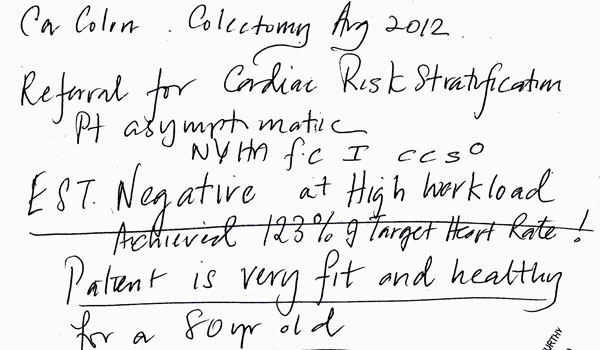 Ca Colon. Colectomy Aug 2012.
Referral for Cardiac Risk Stratification
Pt asymptomatic
NYHA f.c I ccs 0
EST. Negative at High Workload
Achieved 123% of Target Heart Rate!
Patient is very fit and healthy
for a 80 yr old